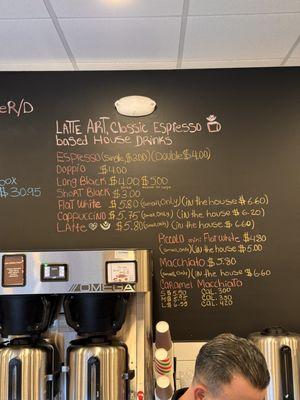 eR/D
LATTE ART, Classic Espresso
based House DRINKS
Espresso (single, $3.00) (Double $4.00)
Doppio $4.00
Long Black $4.00 $5.00
Short Black $3.00
Flat White $5.80 (small, only) (in the house $6.60)
Cappuccino $5.75 (small, only) (in the house $6.20)
LAtte $5.80 (small, only) (in the house $6.60)
Piccolo mini Flat White $4.80
(small, only) (in the house) $5.00
Macchiato $5.80
(small, only) (in the house) $6.60
Caramel Macchiato
S $5.50 CAL. 300
M $5.95 CAL. 350
L $6.55 CAL. 420
box
$30.95
OMEGA